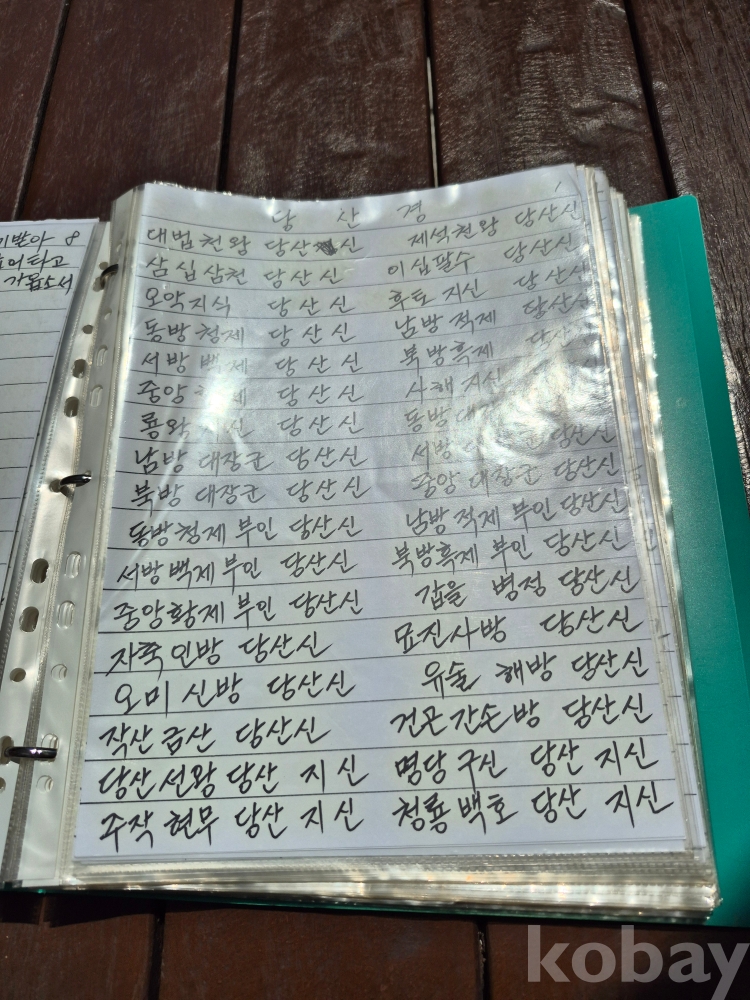 당 산 경
대법천왕 당산신 제석천왕 당산신
삼십삼천 당산신 이십팔수 당산신
오악지식 당산신 후토지신 당산신
동방청제 당산신 남방적제 당산신
서방백제 당산신 북방흑제 당산신
중앙 당산신 사해지신
룡왕 당산신 동방대장
남방대장군 당산신 서방 군 당산신
북방대장군 당산신 중앙대장군 당산신
동방청제부인 당산신 남방적제부인 당산신
서방백제부인 당산신 북방흑제부인 당산신
중앙황제부인 당산신 갑을 병정 당산신
자축인방 당산신 묘진사방 당산신
오미신방 당산신 유술 해방 당산신
작산금산 당산신 건곤간손방 당산신
당산선왕 당산 지신 명당구신 당산 지신
주작현무 당산 지신 청룡백호 당산 지신
가옵소서
kobay